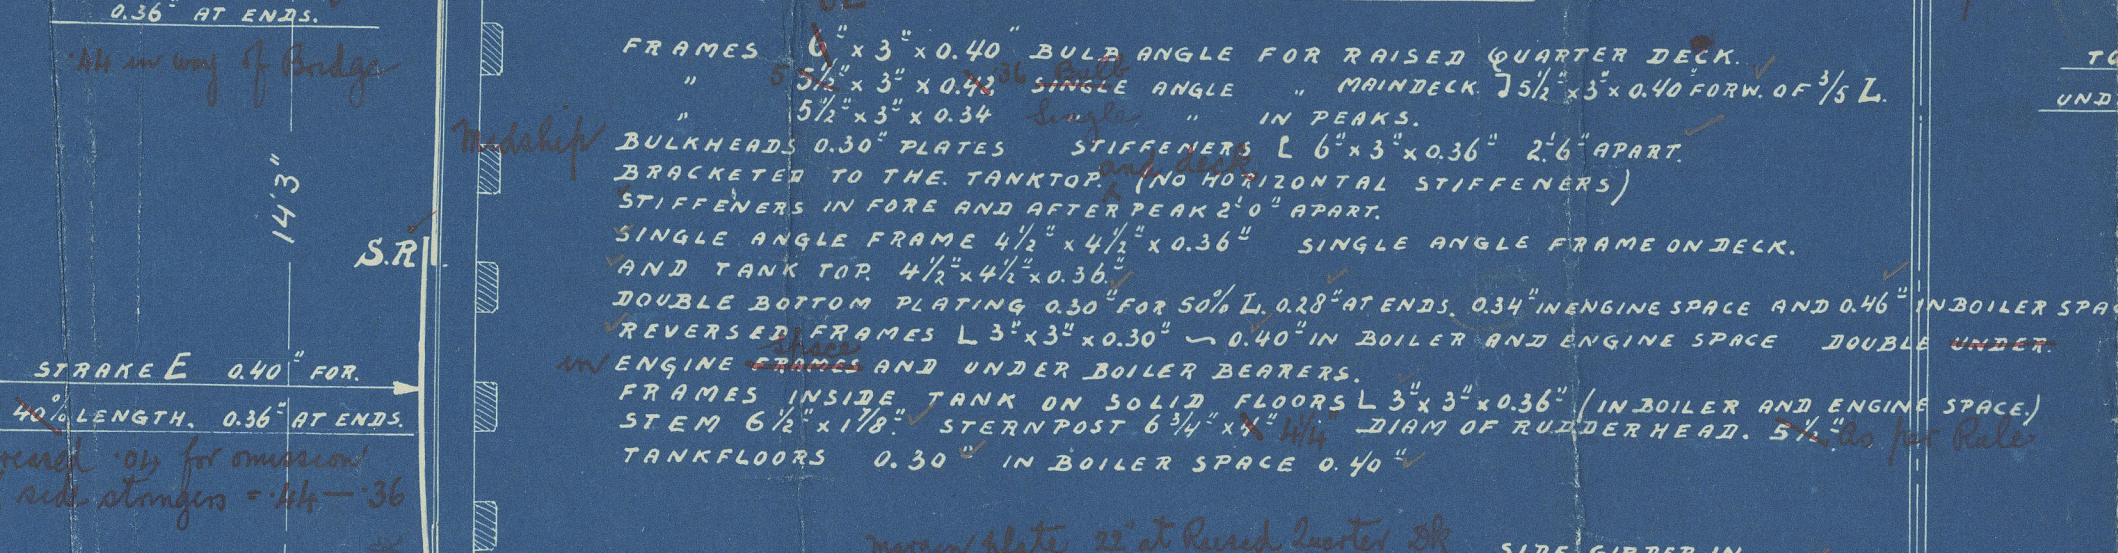 0.36" AT ENDS.
.44 in way of Bridge
14'3"
S.R.
STRAKE E 0.40" FOR.
40% LENGTH. 0.36" AT ENDS.
.04 for omission
side stringers = .44 — .36
FRAMES 6" x 3" x 0.40" BULB ANGLE FOR RAISED QUARTER DECK.
" 5 5½" x 3" x 0.42 .36 Bulb SINGLE ANGLE " MAINDECK. 5½" x 3" x 0.40" FORW. OF 3/5 L.
" 5½" x 3" x 0.34 Single " IN PEAKS.
Midship BULKHEADS 0.30" PLATES STIFFENERS [ 6" x 3" x 0.36" 2'.6" APART.
BRACKETED TO THE. TANKTOP. and deck (NO HORIZONTAL STIFFENERS)
STIFFENERS IN FORE AND AFTER PEAK 2'0" APART.
SINGLE ANGLE FRAME 4½" x 4½" x 0.36" SINGLE ANGLE FRAME ON DECK.
AND TANK TOP. 4½" x 4½" x 0.36."
DOUBLE BOTTOM PLATING 0.30" FOR 50% L. 0.28" AT ENDS. 0.34" IN ENGINE SPACE AND 0.46" IN BOILER SPA
REVERSED FRAMES L 3" x 3" x 0.30" ~ 0.40" IN BOILER AND ENGINE SPACE DOUBLE UNDER.
in ENGINE FRAMES space AND UNDER BOILER BEARERS.
FRAMES INSIDE TANK ON SOLID FLOORS L 3" x 3" x 0.36" (IN BOILER AND ENGINE SPACE.)
STEM 6½" x 1 7/8." STERNPOST 6 3/4" x 4" 4 1/4" DIAM OF RUDDERHEAD. 5½" As per Rule
TANKFLOORS 0.30" IN BOILER SPACE 0.40"
Margin plate 22" at Raised Quarter Dk
SIDE GIRDER IN
TO
UND